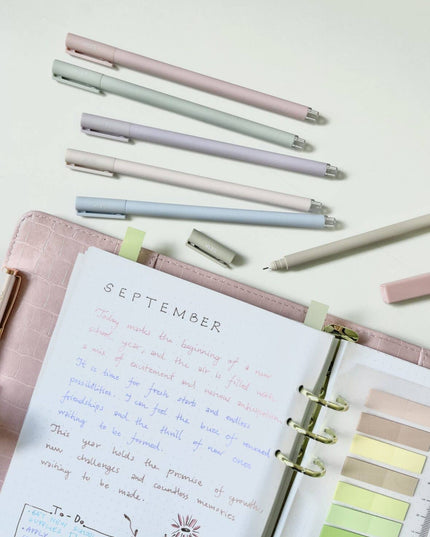 SEPTEMBER
Today marks the beginning of a new
school year, and the air is filled with
a mix of excitement and nervous anticipation.
It is time for fresh starts and endless
possibilities. I can feel the buzz of renewed
friendships and the thrill of new ones
waiting to be formed.
This year holds the promise of growth,
new challenges and countless memories
waiting to be made.
To-Do